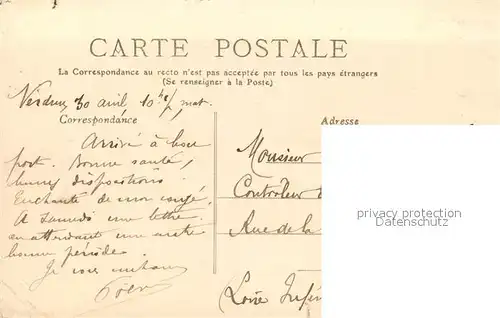 CARTE POSTALE
La Correspondance au recto n'est pas acceptée par tous les pays étrangers
(Se renseigner à la Poste)
Verdun, 30 avril 10 h mat.
Correspondance
Adresse
Arrivé à bon
port. Bonne santé,
bonnes dispositions.
Enchanté de mon congé.
A Samedi une lettre.
en attendant une autre
bonne période.
Je vous embrasse
Monsieur
Controleur
Rue de la
Loire Infér
privacy protection
Datenschutz